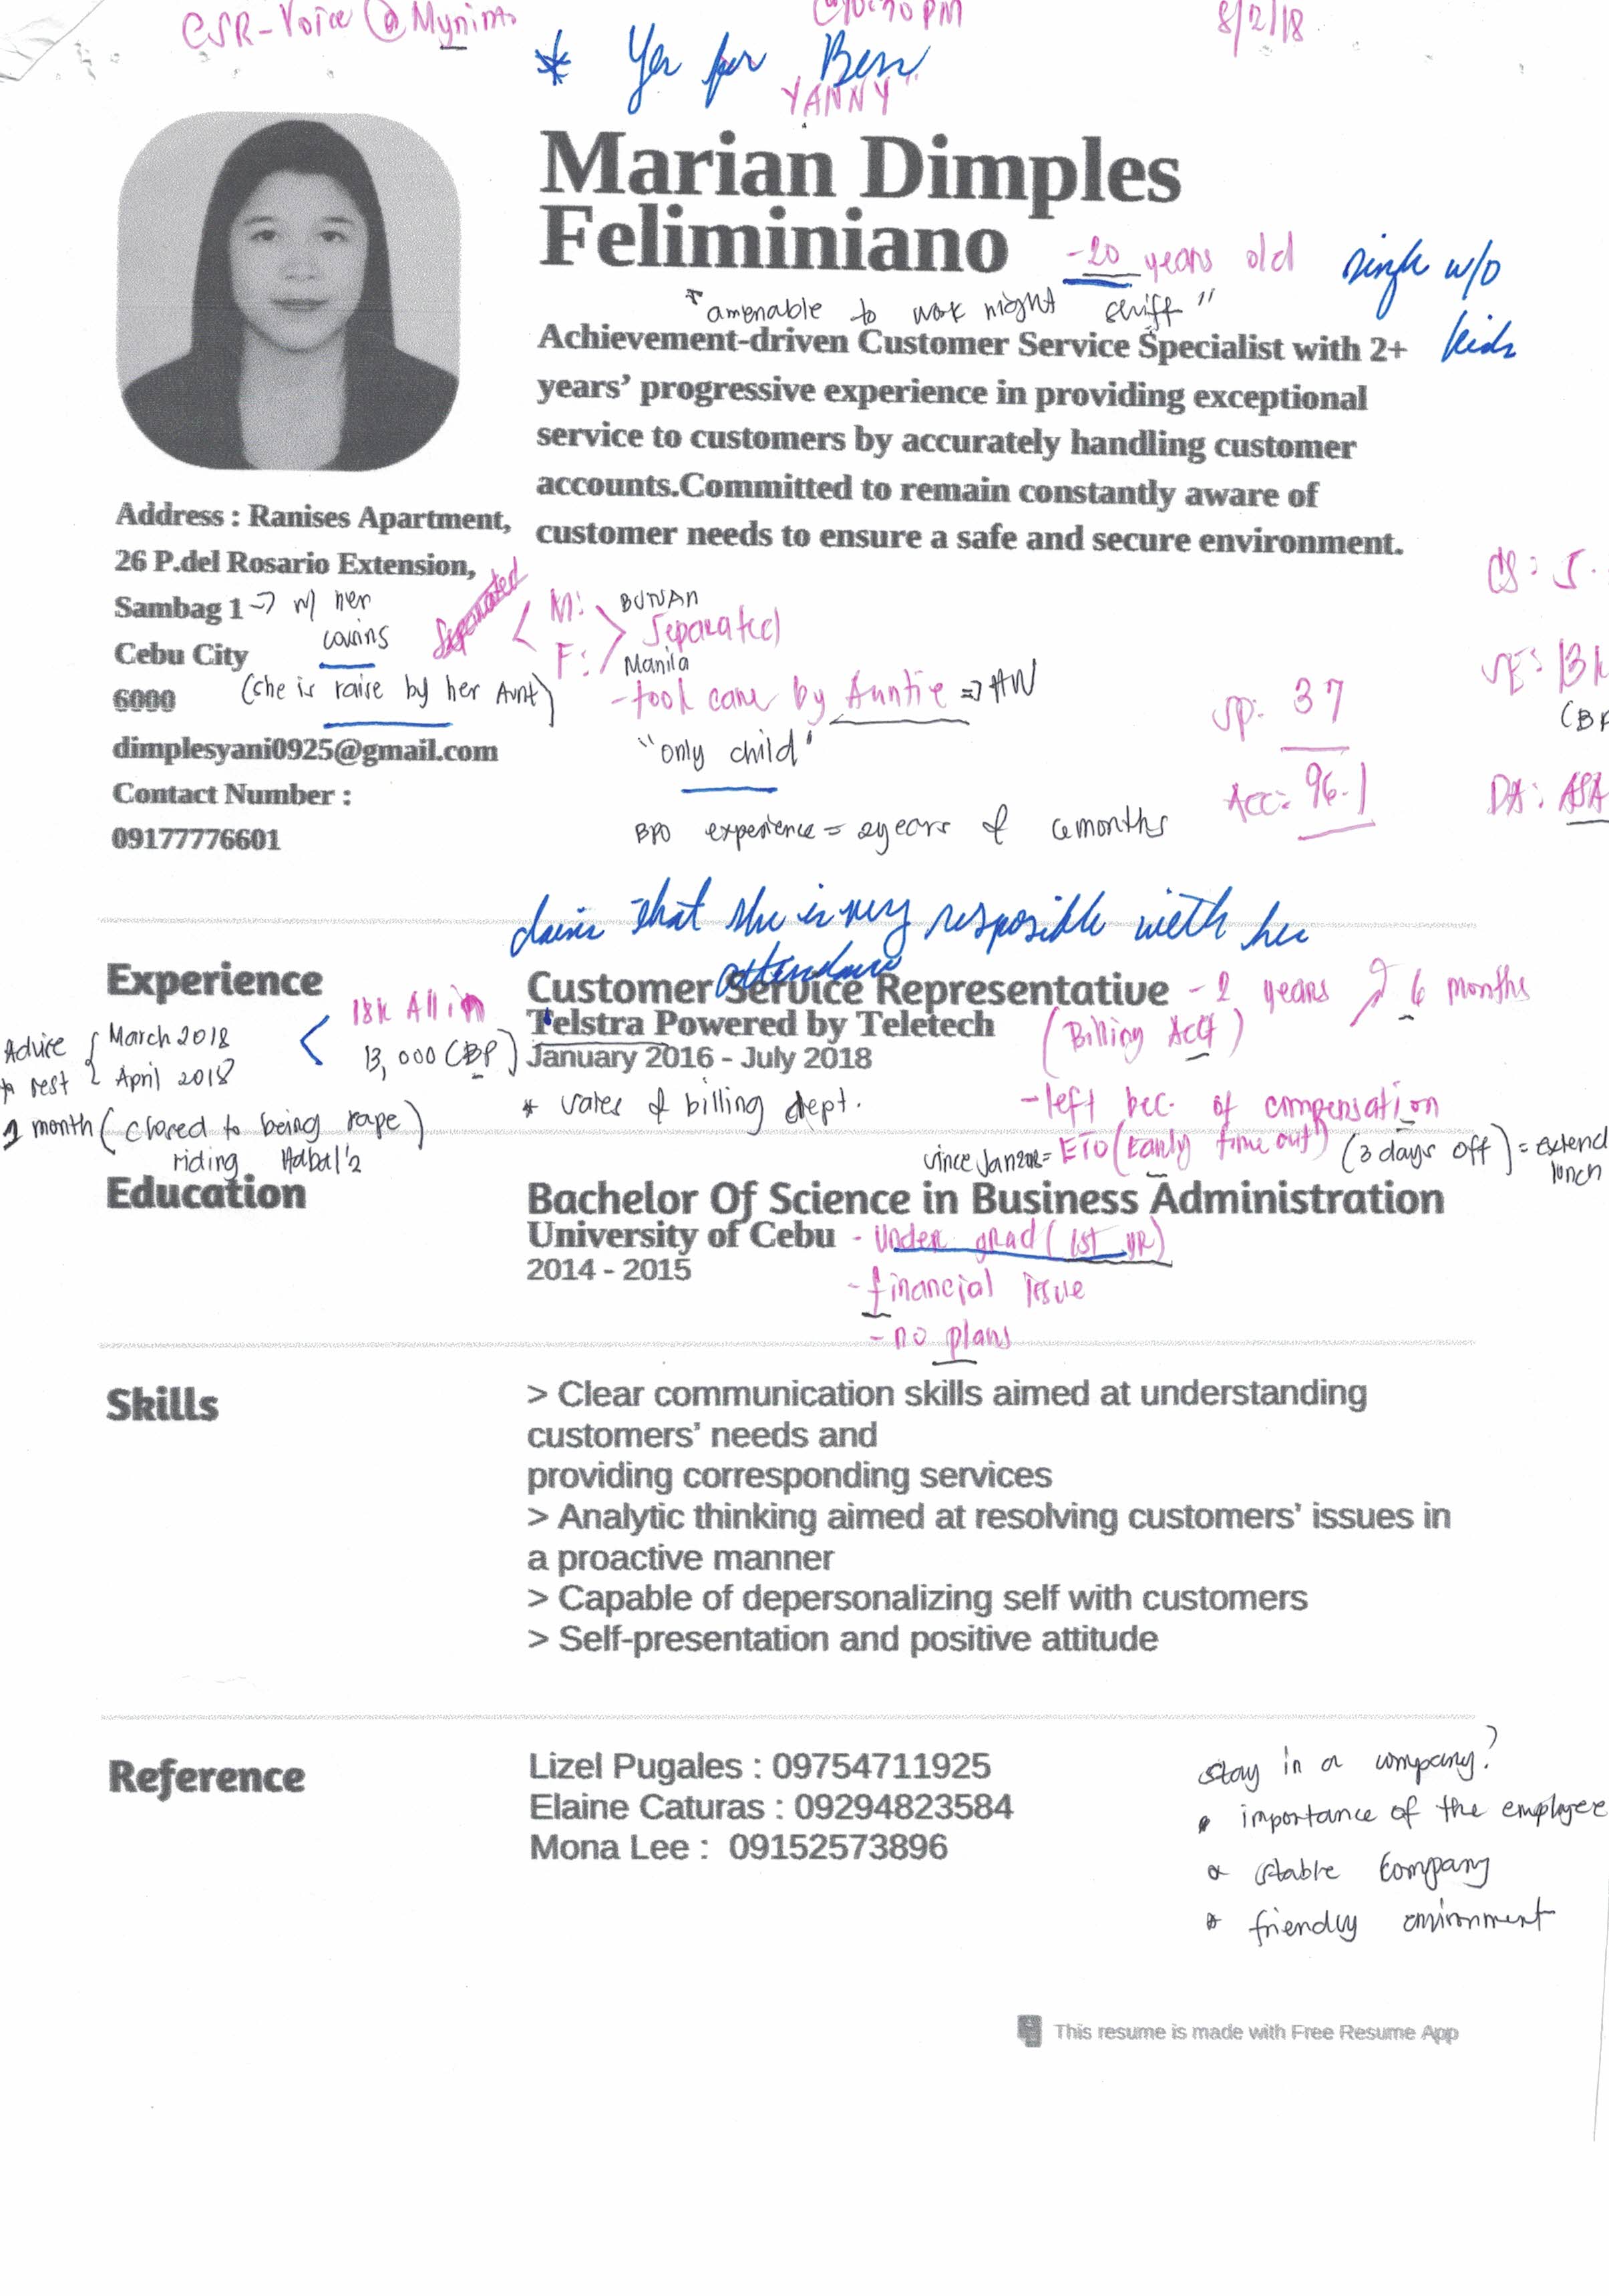 CSR-Voice @ Mynimo
8/2/18
* Yes for Ben
YANNY"
Marian Dimples
Feliminiano
-20 years old
single w/o
kids
"amenable to work night shift"
Achievement-driven Customer Service Specialist with 2+
years' progressive experience in providing exceptional
service to customers by accurately handling customer
accounts.Committed to remain constantly aware of
customer needs to ensure a safe and secure environment.
Address : Ranises Apartment,
26 P.del Rosario Extension,
Sambag 1 -> w/ her
cousins
Cebu City
6000
(she is raise by her Aunt)
dimplesyani0925@gmail.com
Contact Number :
09177776601
Separated
M:
F:
Manila
Separated
-took care by Auntie => HW
"only child"
BPO experience = 2years & 6months
SP: 37
Acc: 96.1
CS: 5.
SE: 13k
(BP
DA: ASA
claims that she is very resposible with her
attendance
Experience
Customer Service Representative - 2 years & 6 months
Telstra Powered by Teletech
(Billing Acct)
January 2016 - July 2018
18k All in
13,000 (BP)
Advice
to rest
March 2018
April 2018
1 month (closed to being rape)
riding Habal2
* sales & billing dept.
-left bec. of compensation
since Jan 2018 = ETO (Early time out) (3 days off) = extend
lunch
Education
Bachelor Of Science in Business Administration
University of Cebu - under grad (1st yr)
2014 - 2015
-financial issue
-no plans
Skills
> Clear communication skills aimed at understanding
customers' needs and
providing corresponding services
> Analytic thinking aimed at resolving customers' issues in
a proactive manner
> Capable of depersonalizing self with customers
> Self-presentation and positive attitude
Reference
Lizel Pugales : 09754711925
Elaine Caturas : 09294823584
Mona Lee : 09152573896
stay in a company?
* importance of the employee
* stable company
* friendly environment
This resume is made with Free Resume App